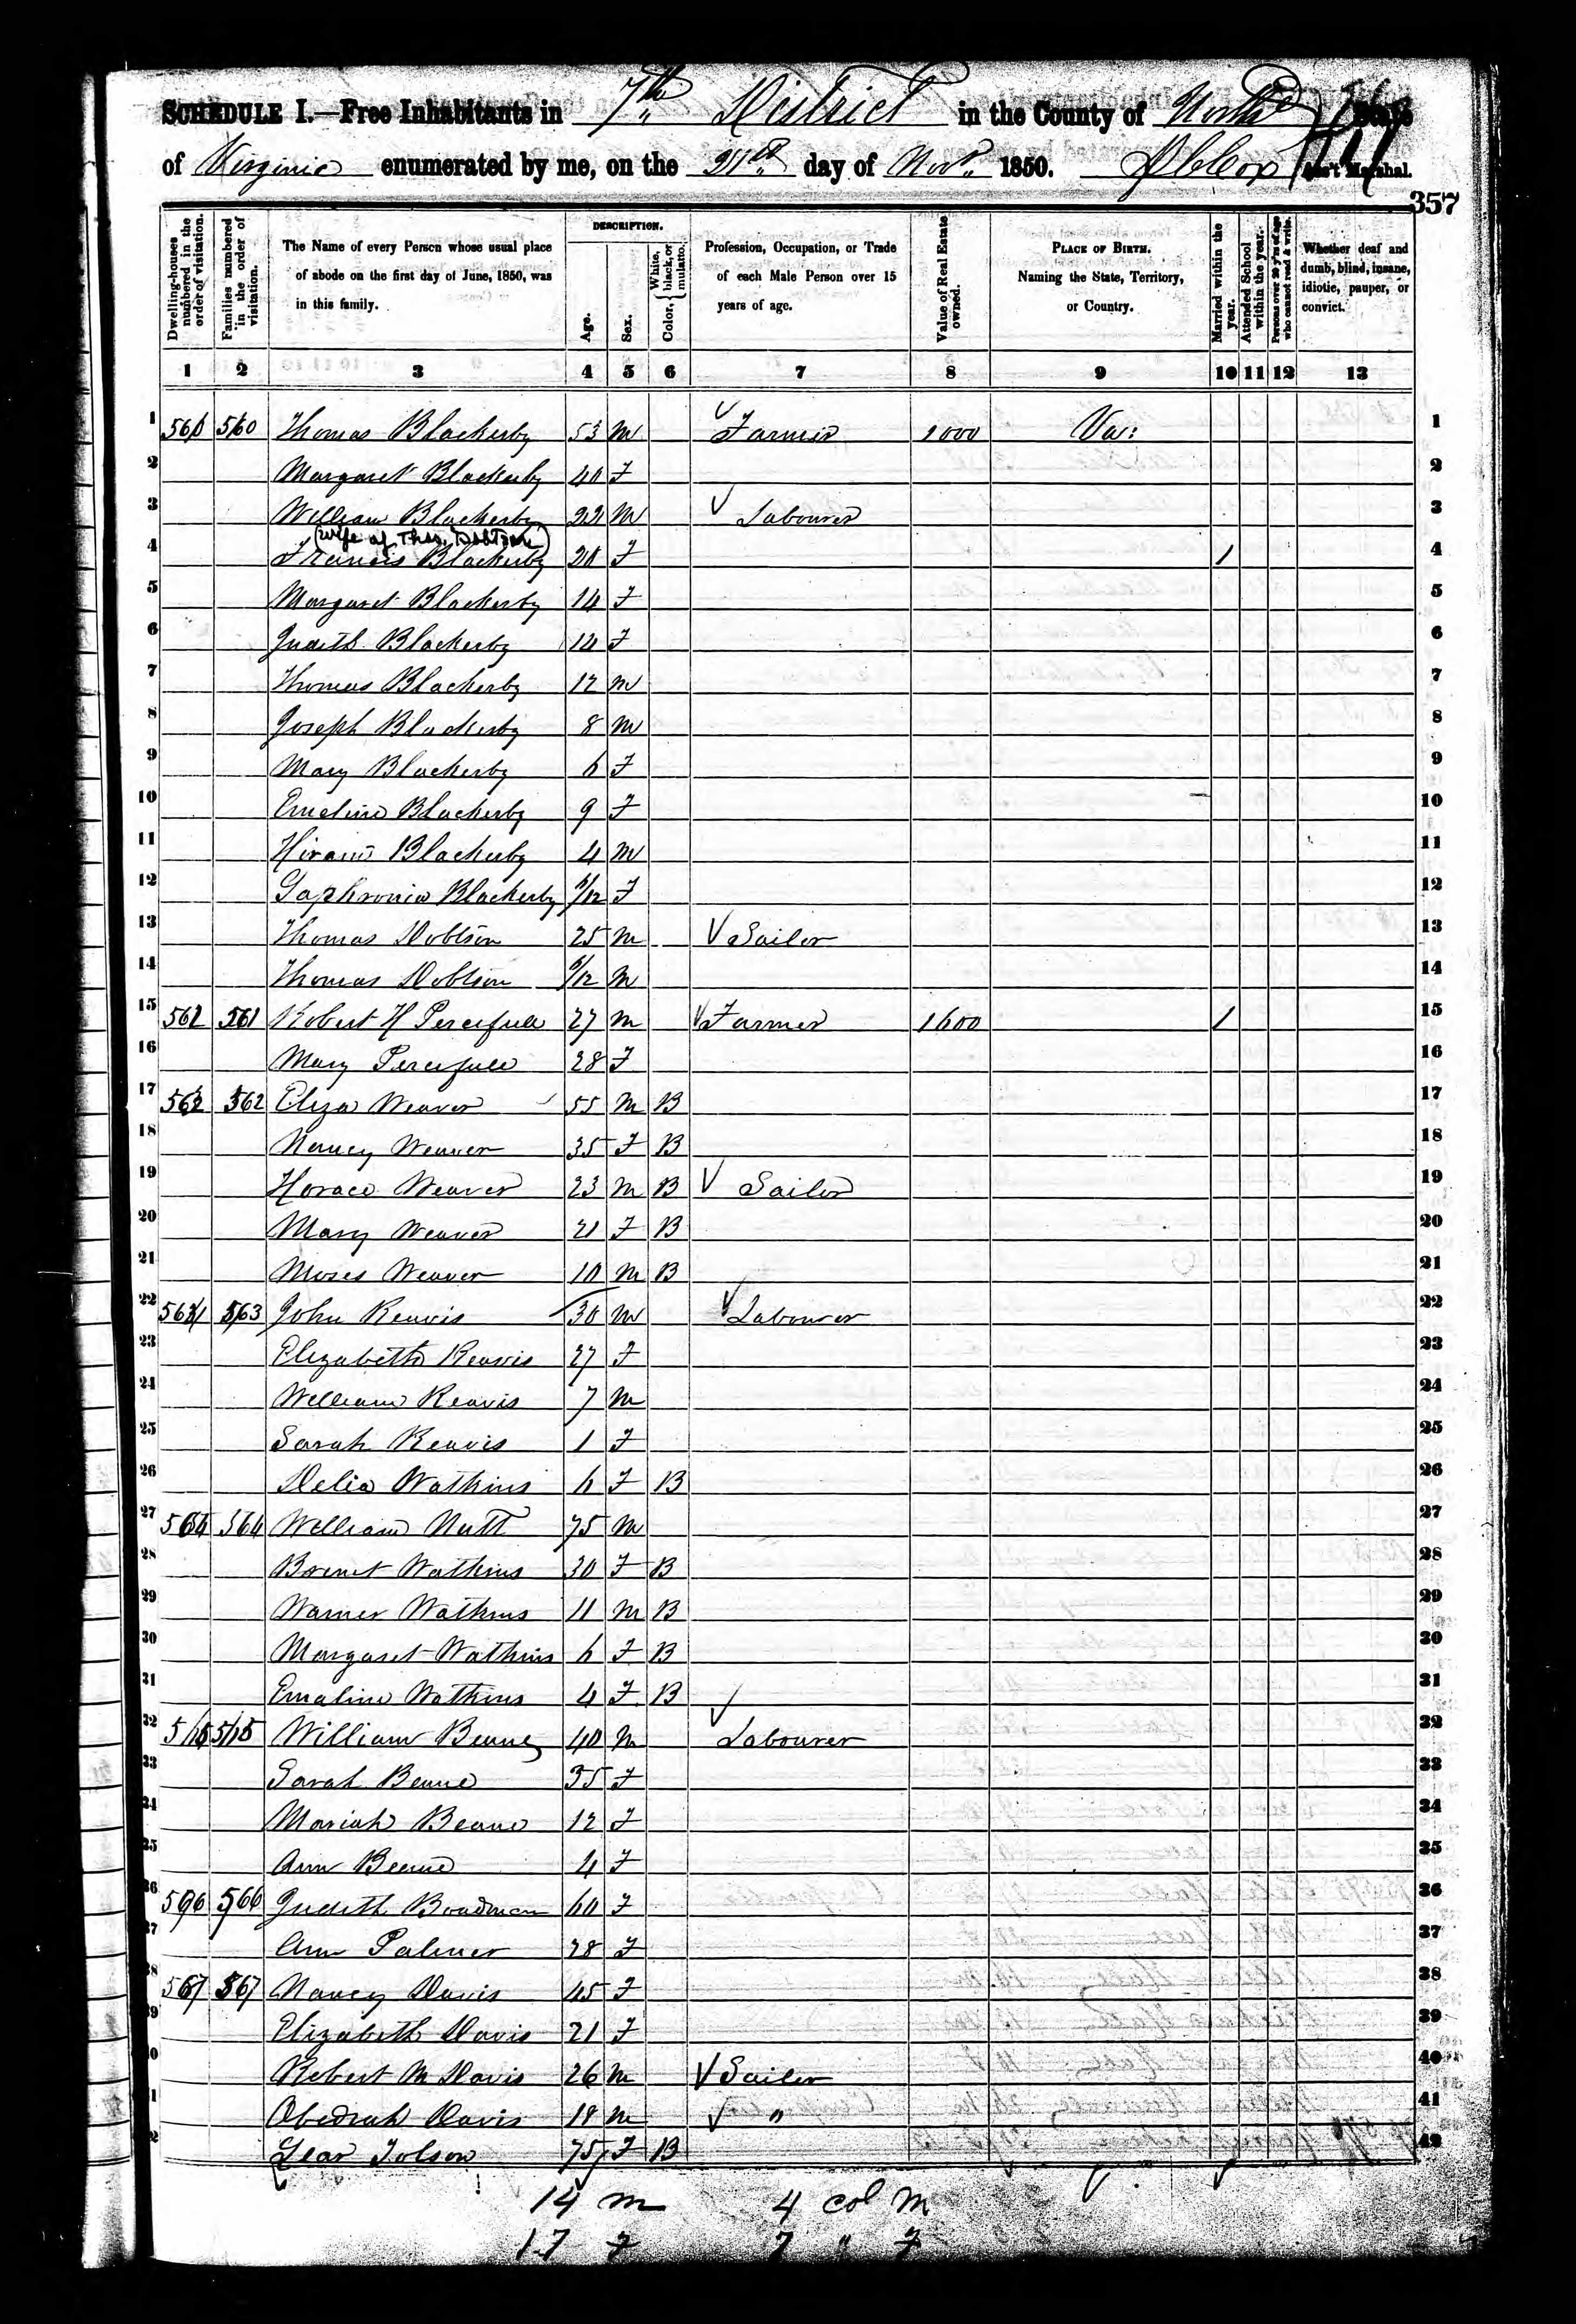 SCHEDULE I.—Free Inhabitants in 7th District in the County of State
of Virginia enumerated by me, on the day of Novr. 1850. Ass't Marshal.
357
Dwelling-houses numbered in the order of visitation.
Families numbered in the order of visitation.
The Name of every Person whose usual place of abode on the first day of June, 1850, was in this family.
DESCRIPTION.
Age.
Sex.
Color. { White, black, or mulatto.
Profession, Occupation, or Trade of each Male Person over 15 years of age.
Value of Real Estate owned.
PLACE OF BIRTH.
Naming the State, Territory, or Country.
Married within the year.
Attended School within the year.
Persons over 20 y'rs of age who cannot read & write.
Whether deaf and dumb, blind, insane, idiotic, pauper, or convict.
1 2 3 4 5 6 7 8 9 10 11 12 13
1 560 Thomas Blackerby 53 M Farmer 1000 Va: 1
2 Margaret Blackerby 40 F 2
3 William Blackerby 22 M Labourer 3
(wife of Thos. Dobson)
4 Francis Blackerby 20 F 1 4
5 Margaret Blackerby 14 F 5
6 Judith Blackerby 14 F 6
7 Thomas Blackerby 12 M 7
8 Joseph Blackerby 8 M 8
9 Mary Blackerby 6 F 9
10 Emeline Blackerby 9 F 10
11 Hiram Blackerby 4 M 11
12 Saphronia Blackerby 6/12 F 12
13 Thomas Dobson 25 M Sailor 13
14 Thomas Dobson 6/12 M 14
15 561 Robert H Percifull 27 M Farmer 1600 1 15
16 Mary Percifull 28 F 16
17 562 Eliza Weaver 55 M B 17
18 Nancy Weaver 35 F B 18
19 Horace Weaver 23 M B Sailor 19
20 Mary Weaver 21 F B 20
21 Moses Weaver 10 M B 21
22 563 John Reavis 30 M Labourer 22
23 Elizabeth Reavis 27 F 23
24 William Reavis 7 M 24
25 Sarah Reavis 1 F 25
26 Delia Watkins 6 F B 26
27 564 William Nutt 75 M 27
28 Watkins 30 F B 28
29 Warner Watkins 11 M B 29
30 Margaret Watkins 6 F B 30
31 Emaline Watkins 4 F B 31
32 William Beane 40 M Labourer 32
33 Sarah Beane 35 F 33
34 Mariah Beane 12 F 34
35 Ann Beane 4 F 35
36 566 Judith Boadman 60 F 36
37 Ann Palmer 28 F 37
38 567 567 Nancy Davis 45 F 38
39 Elizabeth Davis 21 F 39
Robert M Davis 26 M Sailor 40
Obediah Davis 18 M " 41
Lear Tolson 75 F B 42
14 M 4 col M
17 F 7 " F